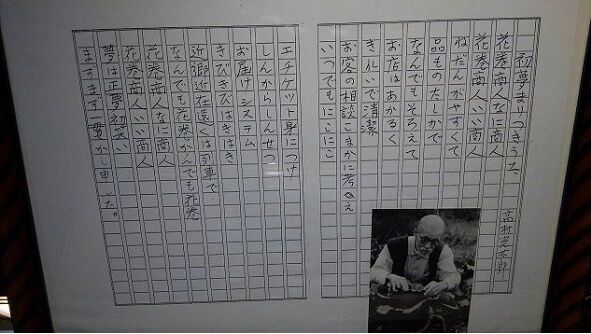 初夢まりつきうた
高村光太郎
花巻商人なに商人
花巻商人いい商人
ねだんがやすくて
品ものたしかで
なんでもそろえて
お店はあかるく
きれいで清潔
お客の相談こまかに考え
いつでもにこにこ
エチケット身につけ
しんからしんせつ
お届けシステム
きびきびはきはき
近郷近在遠くは列車で
なんでも花巻かんでも花巻
花巻商人なに商人
花巻商人いい商人
夢は正夢初笑い
ますます一貫かし申した。